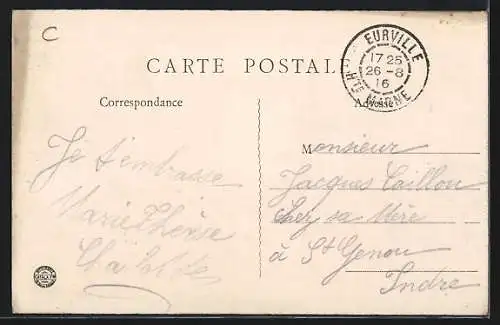 C
EURVILLE
17 25
26-8
16
Hte MARNE
CARTE POSTALE
Correspondance
Adresse
Je t'embrasse
Marie Thérèse
Monsieur
Jacques Caillou
Chez sa Mère
à St Genou
Indre